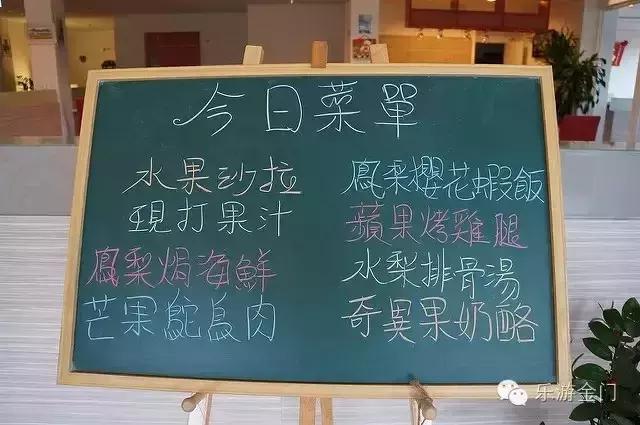 今日菜單
水果沙拉
現打果汁
鳳梨焗海鮮
芒果鴕鳥肉
鳳梨櫻花蝦飯
蘋果烤雞腿
水梨排骨湯
奇異果奶酪
乐游金门